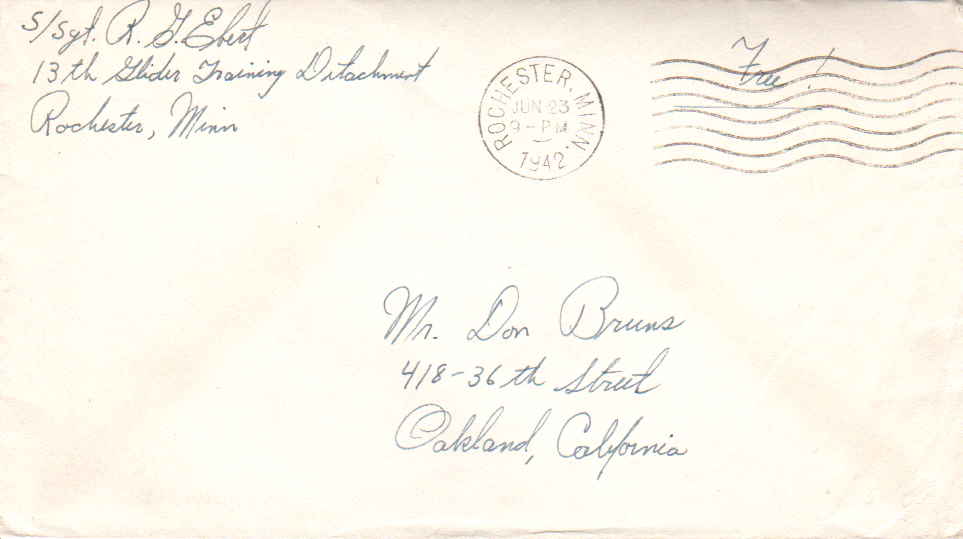 S/Sgt. R. G. Ebert
13th Glider Training Detachment
Rochester, Minn
ROCHESTER, MINN.
JUN 23
9-PM
1942
Free!
Mr. Don Bruns
418-36th Street
Oakland, California